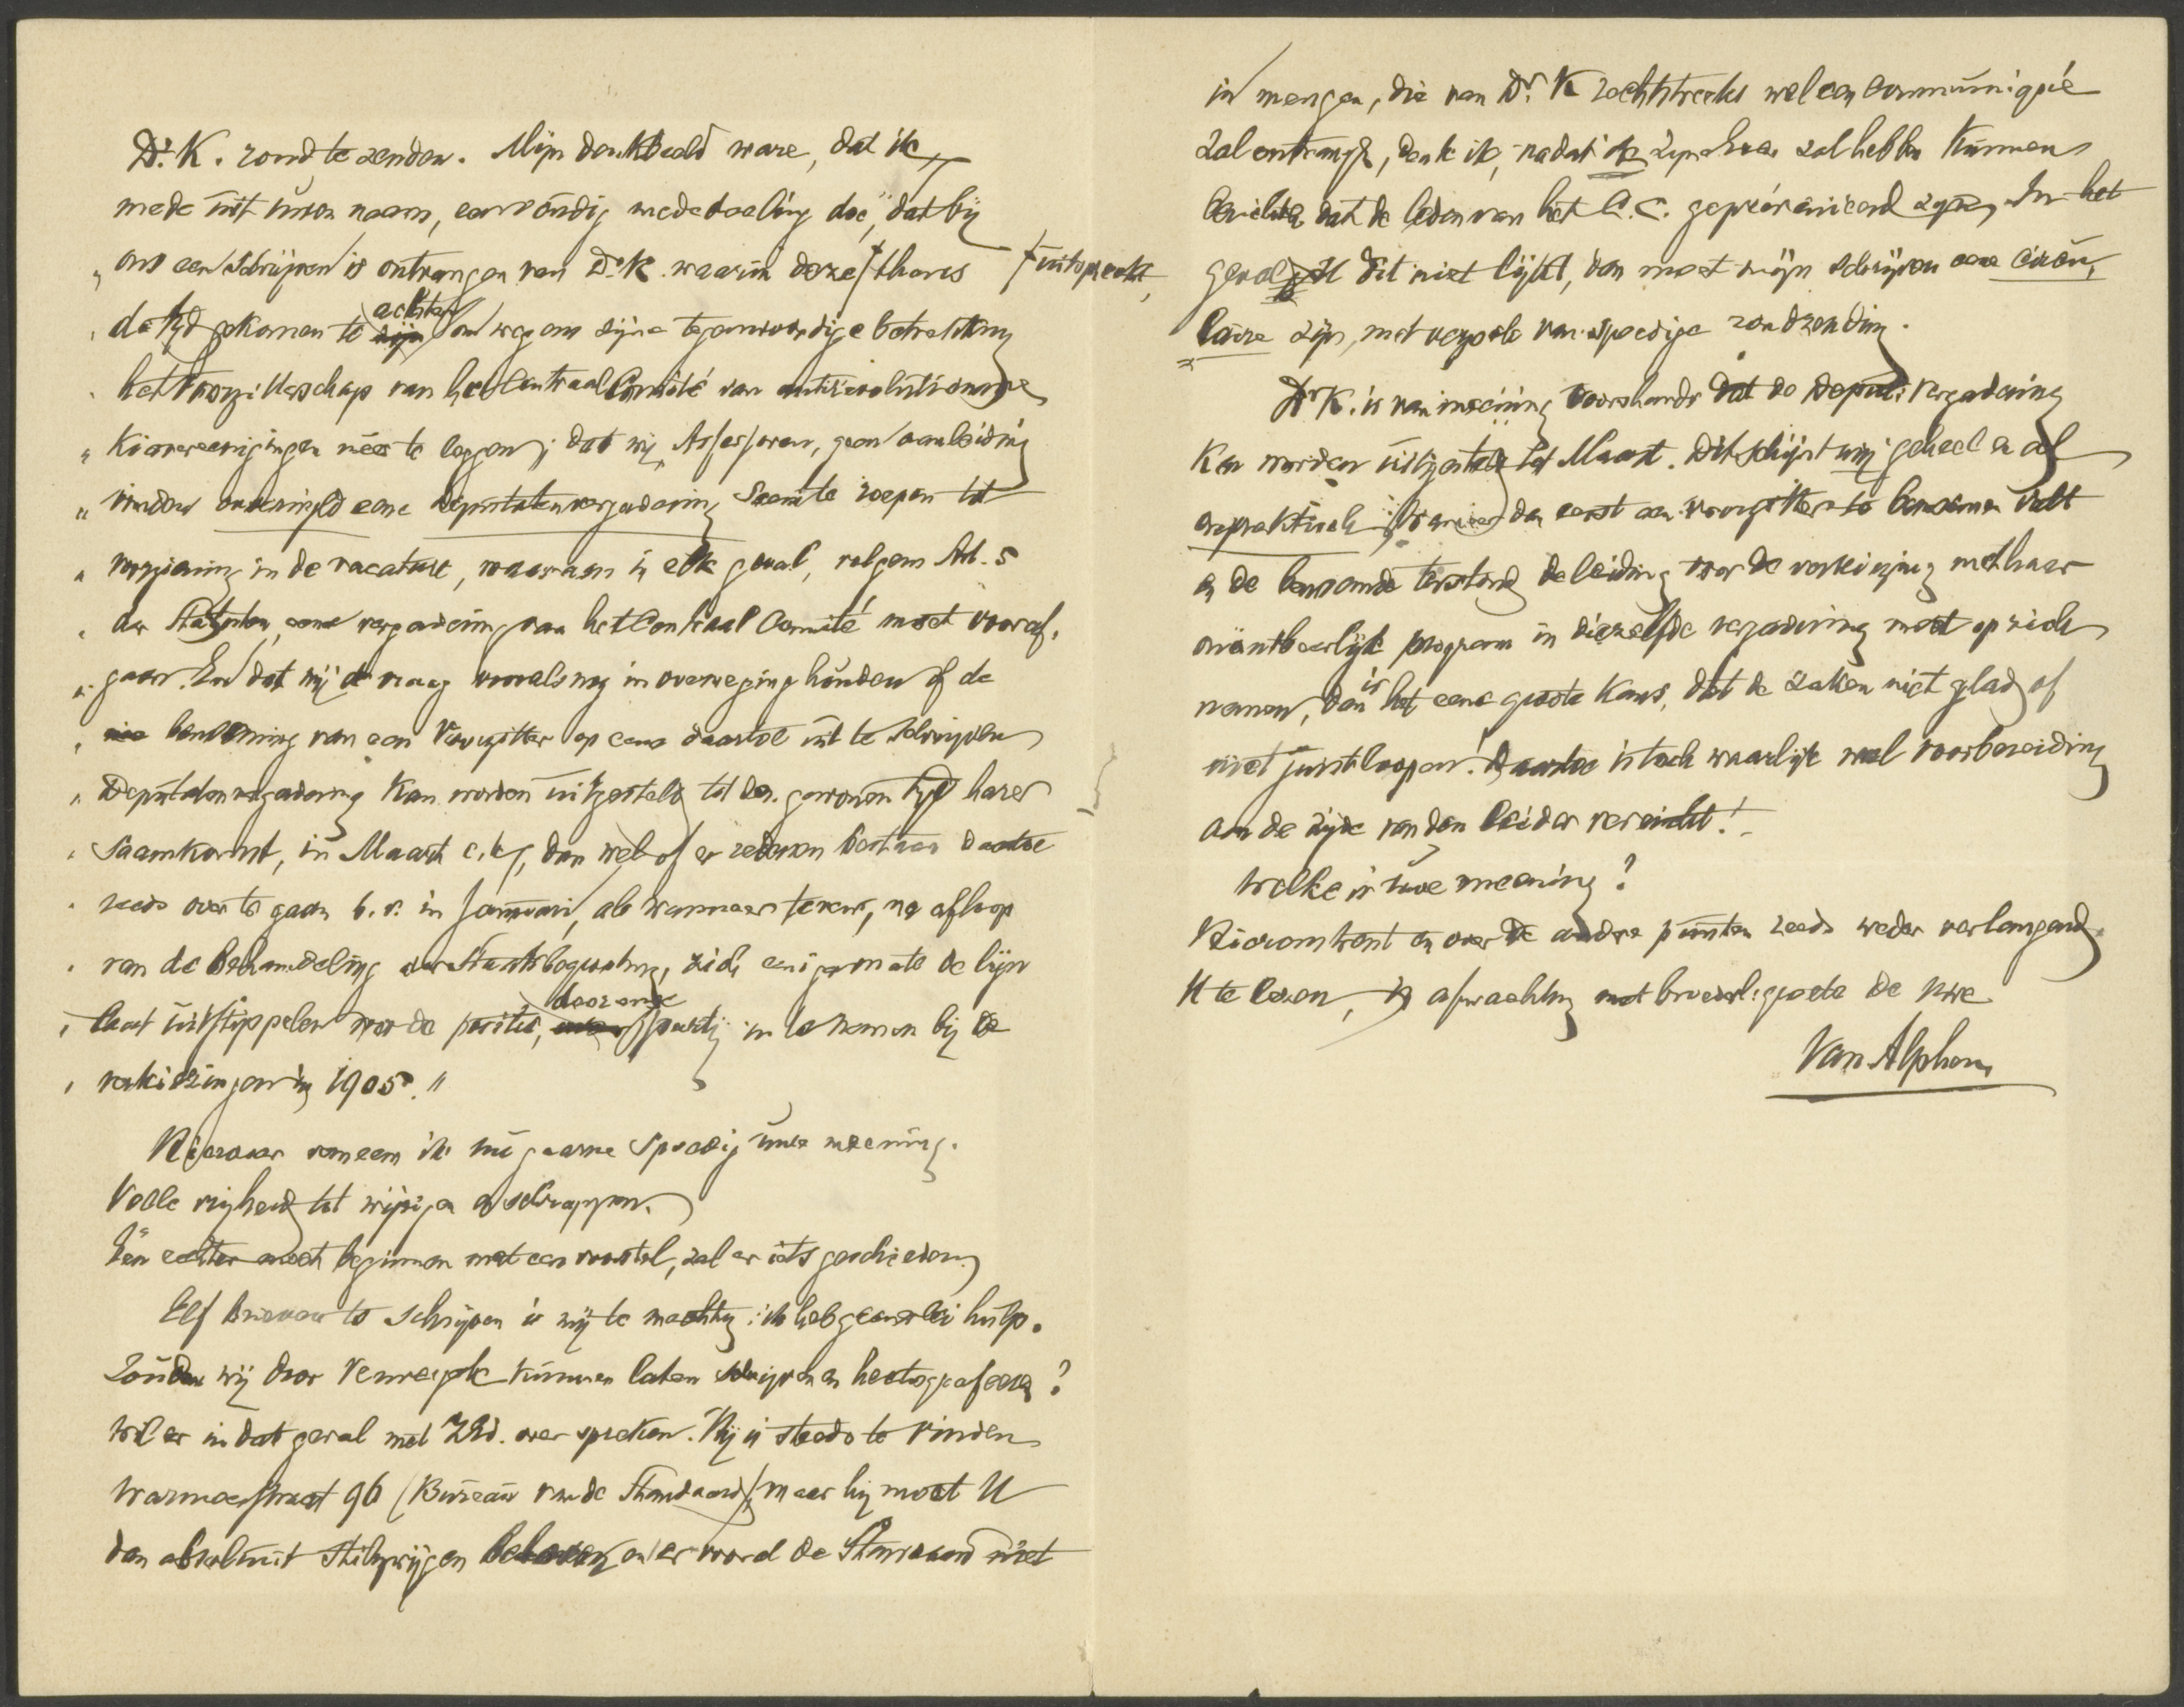 Dr. K. rond te zenden. Mijn denkbeeld ware, dat ik,
mede uit uwen naam, eenvoudig mededeeling doe, „dat bij
„ ons een schrijven is ontvangen van Dr. K. waarin deze † thans † uitspreekt,
„ de tijd gekomen te achten om wegens zijne tegenwoordige betrekking
„ het Voorzitterschap van het Centraal Comité van antirevolutionaire
„ Kiesvereenigingen neer te leggen; dat wij, Assessoren, geen aanleiding
„ vinden onverwijld eene Deputatenvergadering saam te roepen tot
„ voorziening in de vacature, waaraan in elk geval, volgens Art. 5
„ der Statuten, eene vergadering van het Centraal Comité moet vooraf-
„ gaan. En dat wij de vraag vooralsnog in overweging houden of de
„ benoeming van een Voorzitter op eene daartoe uit te schrijven
„ Deputatenvergadering kan worden uitgesteld tot den gewonen tijd harer
„ Saamkomst, in Maart e.k., dan wel of er redenen bestaan daartoe
„ reeds over te gaan b.v. in Januari, als wanneer tevens, na afloop
„ van de behandeling der Staatsbegrooting, zich eenigermate de lijn
„ laat uitstippelen voor de positie, door onze partij in te nemen bij de
„ verkiezingen in 1905."
Hierover verneem ik nu gaarne spoedig uwe meening.
Volle vrijheid tot wijzigen en schrappen.
Eén echter moet beginnen met een voorstel, zal er iets geschieden.
Elf brieven te schrijven is mij te machtig: ik heb geenerlei hulp.
Zouden wij door Verweyck kunnen laten schrijven en hectografeeren?
Wil er in dat geval met ZEd. over spreken. Hij is steeds te vinden
Warmoesstraat 96 (Bureau van de Standaard), maar hij moet U
dan absoluut stilzwijgen beloven en er vooral de Standaard niet
in mengen, die van Dr. K rechtstreeks wel een communiqué
zal ontvangen, denk ik, nadat ik zijne Exc. zal hebben kunnen
berichten dat de leden van het C.C. gepreveniëerd zijn. In het
geval U dit niet lijkt, dan moet mijn schrijven eene circu-
laire zijn, met verzoek van spoedige rondzending.
Dr. K. is van meening voorshands dat de Deput. vergadering
kan worden uitgesteld tot Maart. Dit schijnt mij geheel en al
onpraktisch; wanneer dan eerst een voorzitter te benoemen valt
en de benoemde terstond de leiding voor de verkiezing met haar
onontbeerlijk program in diezelfde vergadering moet op zich
nemen, dan is het eene groote kans, dat de zaken niet glad of
niet juist loopen! Daartoe is toch waarlijk wel voorbereiding
aan de zijde van den leider vereischt!
Welke is uwe meening?
Hieromtrent en over de andere punten reeds weder verlangend
U te lezen, in afwachting met broederl. groete de uwe
Van Alphen